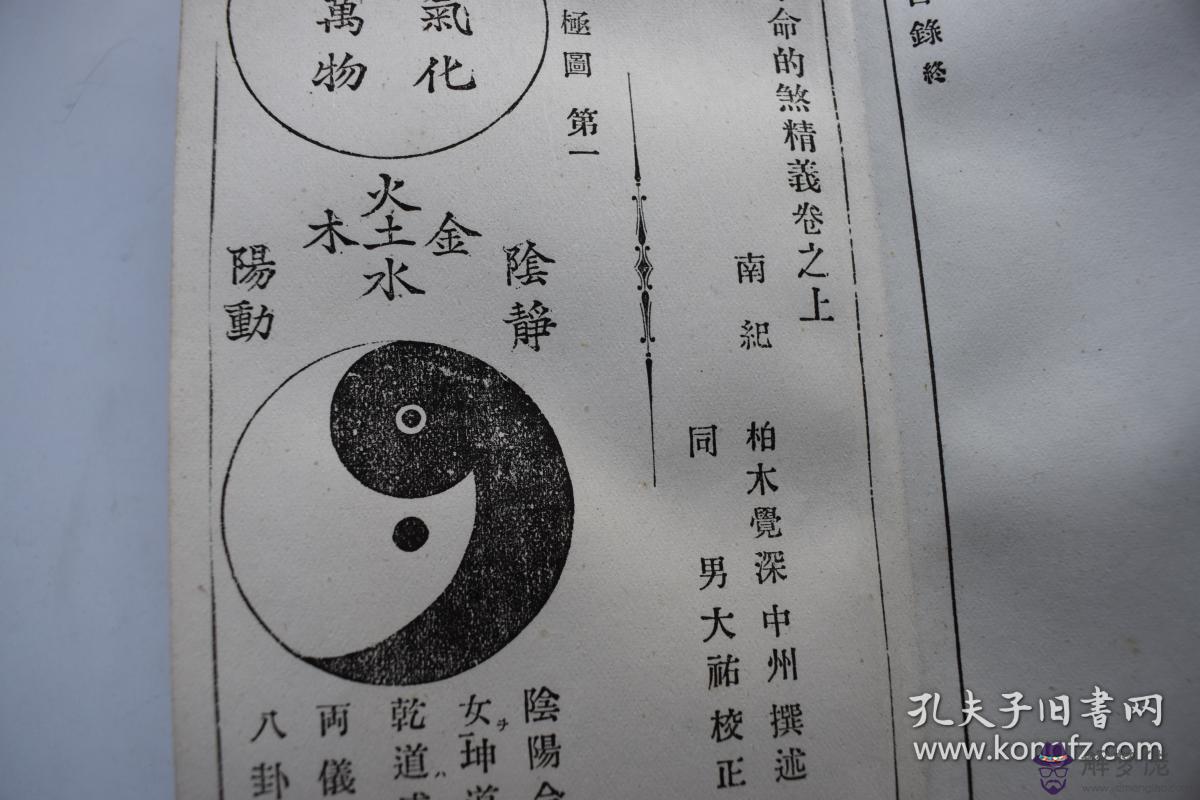 目錄終
命的煞精義卷之上
南紀
柏木覺深中州撰述
同男大祐校正
極圖第一
氣化
萬物
火
金土木
水
陰靜
陽動
陰陽合
女ヲ坤道
乾道成
両儀
八卦
孔夫子旧书网
www.kongfz.com
解梦佬
www.jiemenglao.com